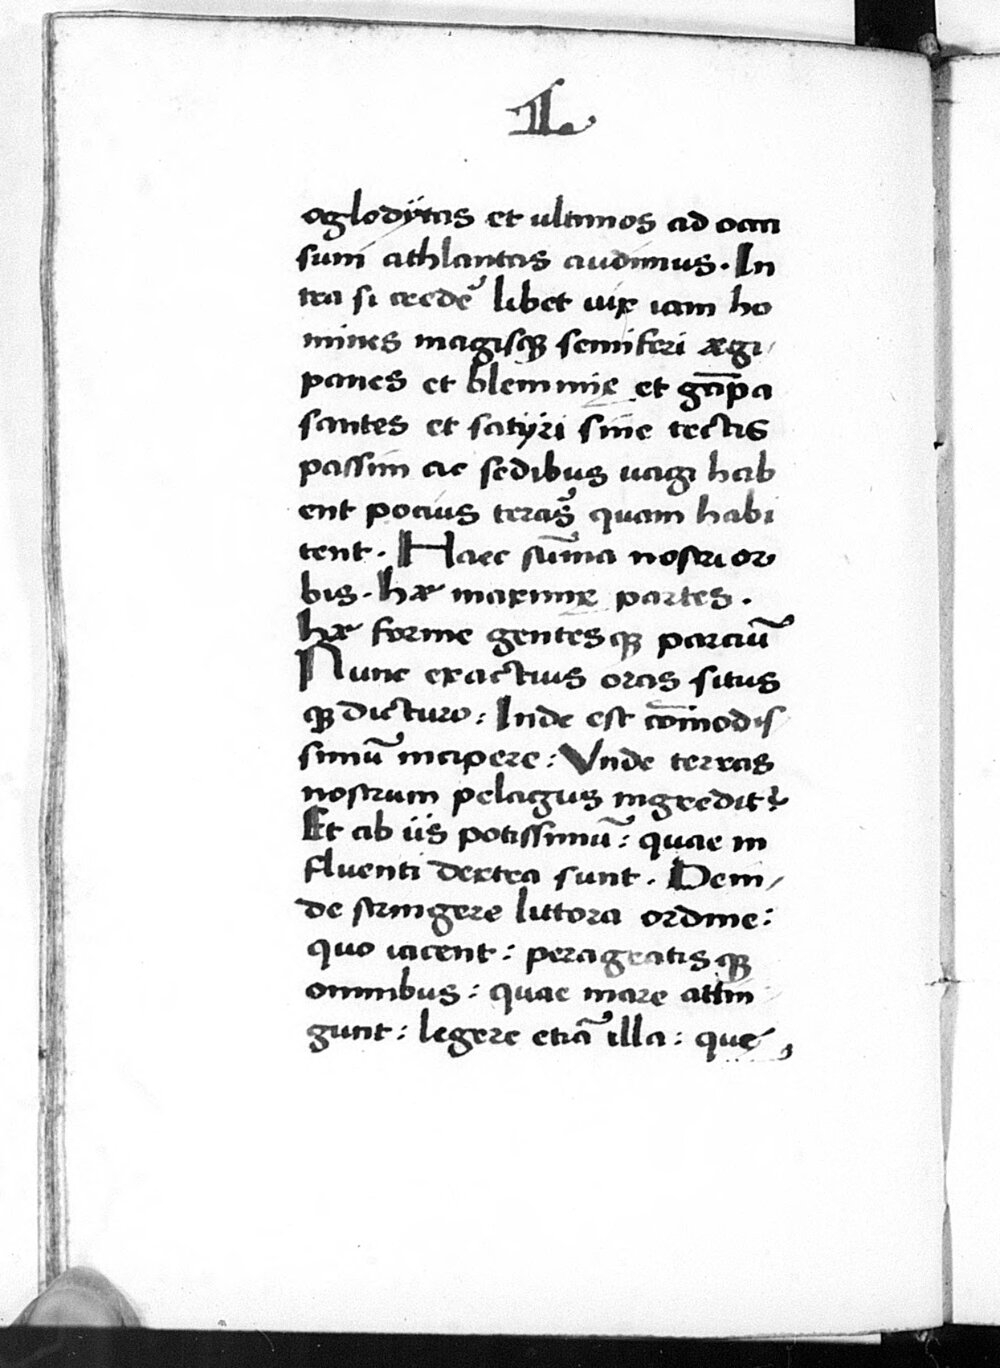 L
oglodÿtas et ultimos ad occa
sum athlantas audimus. In
tra si credē libet uix iam ho
mines magisqꝫ semiferi ægi
panes et blemmiæ et gāpa
santes et satÿri sine tectis
passim ac sedibus uagi hab
ent pocius teras̄ quam habi
tent. Haec sūma nostri or
bis. hæ maximæ partes.
hæ forme gentesqꝫ parciū
Nunc exactius oras situs
qꝫ dicturo: Inde est cōmodis
simū incipere: Vnde terras
nostrum pelagus ingredit̉
Et ab iis potissimū: quae in
fluenti dextra sunt. Dein
de stringere littora ordine:
quo iacent: peragratisqꝫ
omnibus: quae mare attin
gunt: legere etiā illa: que